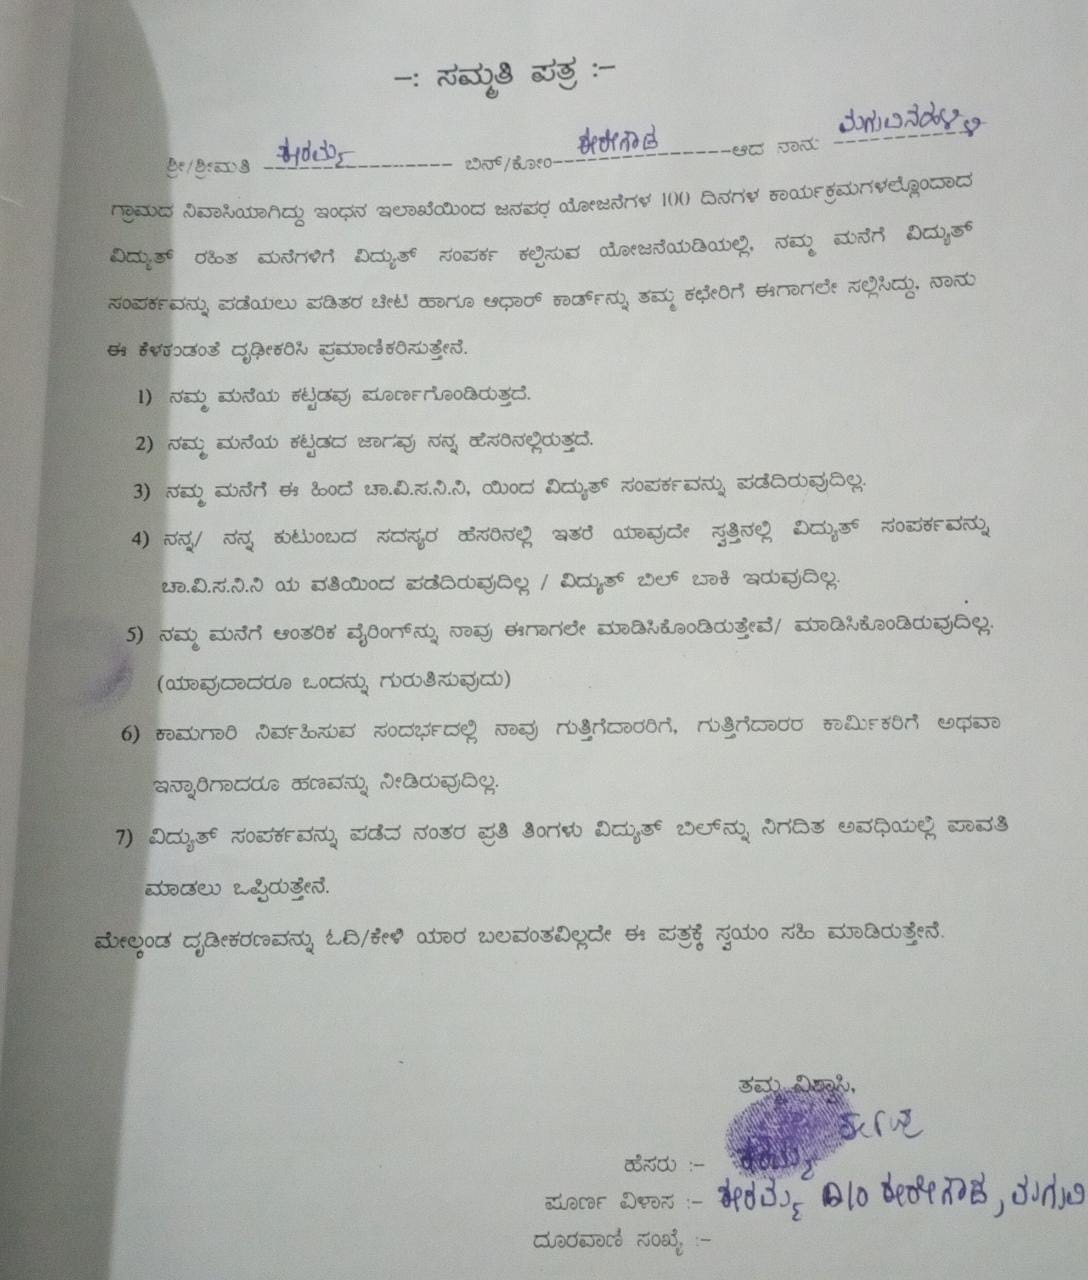 -: ಸಮ್ಮತಿ ಪತ್ರ :-
ಶ್ರೀ/ಶ್ರೀಮತಿ ---------- ಬಿನ್/ಕೋಂ---------- ಆದ ನಾನು ----------
ಗ್ರಾಮದ ನಿವಾಸಿಯಾಗಿದ್ದು ಇಂಧನ ಇಲಾಖೆಯಿಂದ ಜನಪರ ಯೋಜನೆಗಳ 100 ದಿನಗಳ ಕಾರ್ಯಕ್ರಮಗಳಲ್ಲೊಂದಾದ
ವಿದ್ಯುತ್ ರಹಿತ ಮನೆಗಳಿಗೆ ವಿದ್ಯುತ್ ಸಂಪರ್ಕ ಕಲ್ಪಿಸುವ ಯೋಜನೆಯಡಿಯಲ್ಲಿ, ನಮ್ಮ ಮನೆಗೆ ವಿದ್ಯುತ್
ಸಂಪರ್ಕವನ್ನು ಪಡೆಯಲು ಪಡಿತರ ಚೀಟಿ ಹಾಗೂ ಆಧಾರ್ ಕಾರ್ಡ್‌ನ್ನು ತಮ್ಮ ಕಛೇರಿಗೆ ಈಗಾಗಲೇ ಸಲ್ಲಿಸಿದ್ದು, ನಾನು
ಈ ಕೆಳಕಂಡಂತೆ ದೃಢೀಕರಿಸಿ ಪ್ರಮಾಣಿಕರಿಸುತ್ತೇನೆ.
1) ನಮ್ಮ ಮನೆಯ ಕಟ್ಟಡವು ಪೂರ್ಣಗೊಂಡಿರುತ್ತದೆ.
2) ನಮ್ಮ ಮನೆಯ ಕಟ್ಟಡದ ಜಾಗವು ನನ್ನ ಹೆಸರಿನಲ್ಲಿರುತ್ತದೆ.
3) ನಮ್ಮ ಮನೆಗೆ ಈ ಹಿಂದೆ ಚಾ.ವಿ.ಸ.ನಿ.ನಿ, ಯಿಂದ ವಿದ್ಯುತ್ ಸಂಪರ್ಕವನ್ನು ಪಡೆದಿರುವುದಿಲ್ಲ.
4) ನನ್ನ/ ನನ್ನ ಕುಟುಂಬದ ಸದಸ್ಯರ ಹೆಸರಿನಲ್ಲಿ ಇತರೆ ಯಾವುದೇ ಸ್ವತ್ತಿನಲ್ಲಿ ವಿದ್ಯುತ್ ಸಂಪರ್ಕವನ್ನು
ಚಾ.ವಿ.ಸ.ನಿ.ನಿ ಯ ವತಿಯಿಂದ ಪಡೆದಿರುವುದಿಲ್ಲ / ವಿದ್ಯುತ್ ಬಿಲ್ ಬಾಕಿ ಇರುವುದಿಲ್ಲ.
5) ನಮ್ಮ ಮನೆಗೆ ಆಂತರಿಕ ವೈರಿಂಗ್‌ನ್ನು ನಾವು ಈಗಾಗಲೇ ಮಾಡಿಸಿಕೊಂಡಿರುತ್ತೇವೆ/ ಮಾಡಿಸಿಕೊಂಡಿರುವುದಿಲ್ಲ.
(ಯಾವುದಾದರೂ ಒಂದನ್ನು ಗುರುತಿಸುವುದು)
6) ಕಾಮಗಾರಿ ನಿರ್ವಹಿಸುವ ಸಂದರ್ಭದಲ್ಲಿ ನಾವು ಗುತ್ತಿಗೆದಾರರಿಗೆ, ಗುತ್ತಿಗೆದಾರರ ಕಾರ್ಮಿಕರಿಗೆ ಅಥವಾ
ಇನ್ನಾರಿಗಾದರೂ ಹಣವನ್ನು ನೀಡಿರುವುದಿಲ್ಲ.
7) ವಿದ್ಯುತ್ ಸಂಪರ್ಕವನ್ನು ಪಡೆದ ನಂತರ ಪ್ರತಿ ತಿಂಗಳು ವಿದ್ಯುತ್ ಬಿಲ್‌ನ್ನು ನಿಗದಿತ ಅವಧಿಯಲ್ಲಿ ಪಾವತಿ
ಮಾಡಲು ಒಪ್ಪಿರುತ್ತೇನೆ.
ಮೇಲ್ಕಂಡ ದೃಢೀಕರಣವನ್ನು ಓದಿ/ಕೇಳಿ ಯಾರ ಬಲವಂತವಿಲ್ಲದೇ ಈ ಪತ್ರಕ್ಕೆ ಸ್ವಯಂ ಸಹಿ ಮಾಡಿರುತ್ತೇನೆ.
ತಮ್ಮ ವಿಶ್ವಾಸಿ,
ಹೆಸರು :-
ಪೂರ್ಣ ವಿಳಾಸ :- D/o
ದೂರವಾಣಿ ಸಂಖ್ಯೆ :-